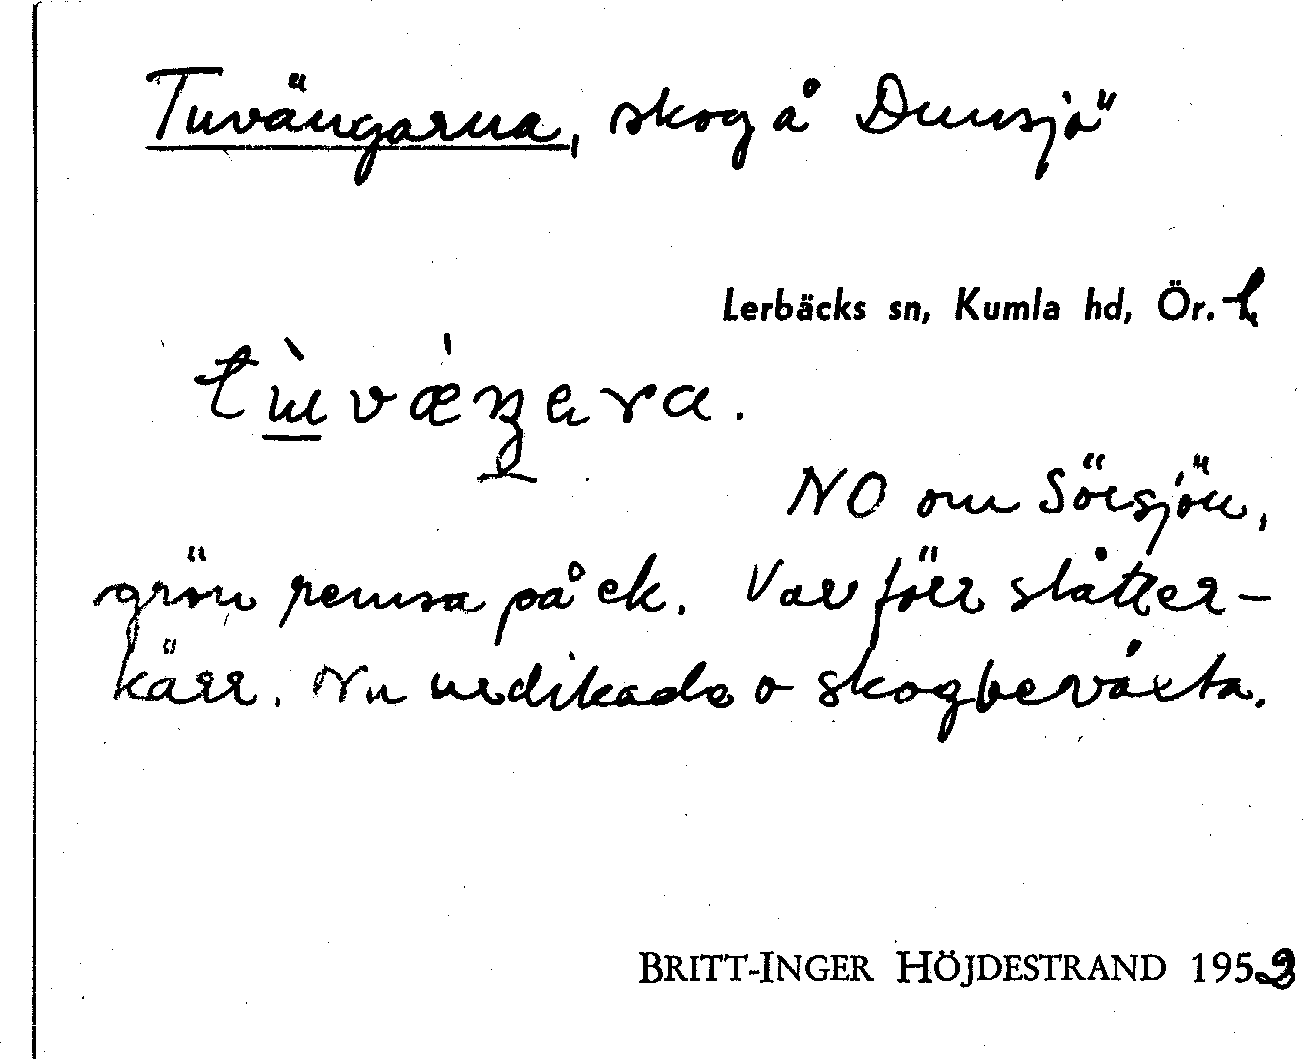 Tuvängarna, skog å Dunsjö
Lerbäcks sn, Kumla hd, Ör. l.
NO om Sörsjön,
grön remsa på ek. Var förr slåtter-
kärr. Nu utdikade o skogbeväxta.
BRITT-INGER HÖJDESTRAND 195